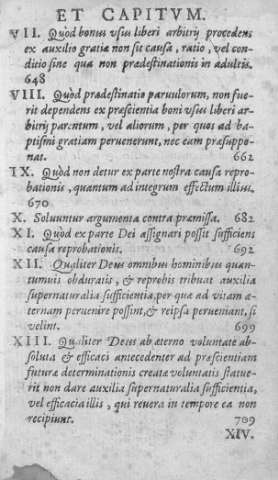 ET CAPITVM.
VII. Quòd bonus vsus liberi arbitrij procedens
ex auxilio gratiæ non sit causa, ratio, vel con
ditio sine qua non prædestinationis in adultis.
648
VIII. Quòd prædestinatio paruulorum, non fue-
rit dependens ex præscientia boni vsus liberi ar-
bitrij parentum, vel aliorum, per quos ad ba-
ptismi gratiam peruenerunt, nec eam præsuppo-
nat. 662
IX. Quòd non detur ex parte nostra causa repro-
bationis, quantum ad integrum effectum illius.
670
X. Soluuntur argumenta contra præmissa. 682
XI. Quòd ex parte Dei assignari possit sufficiens
causa reprobationis. 692
XII. Qualiter Deus omnibus hominibus quan-
tumuis obduratis, & reprobis tribuat auxilia
supernaturalia sufficientia, per quæ ad vitam æ-
ternam peruenire possint, & reipsa perueniant, si
velint. 699
XIII. Qualiter Deus ab æterno voluntate ab-
soluta & efficaci antecedenter ad præscientiam
futuræ determinationis creatæ voluntatis statue-
rit non dare auxilia supernaturalia sufficientia,
vel efficacia illis, qui reuera in tempore ea non
recipiunt. 709
XIV.